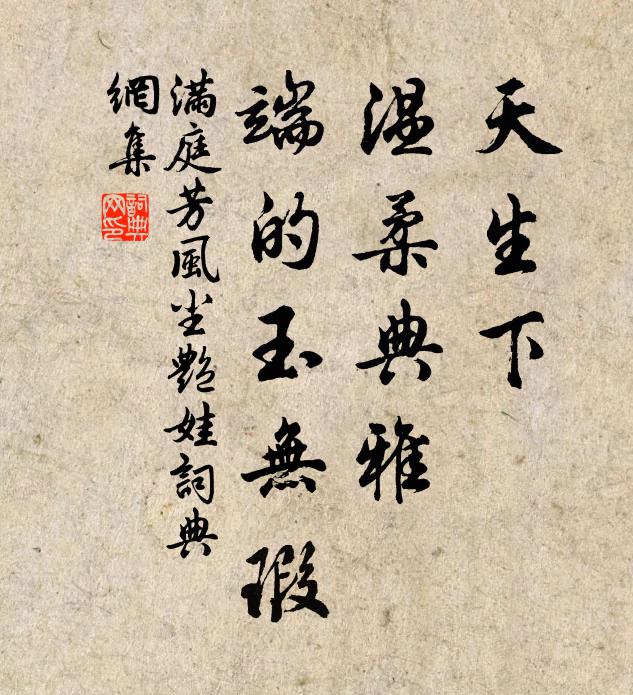 天生下
温柔典雅
端的玉無瑕
滿庭芳風尘艷娃詞典
網集
詞典
网印